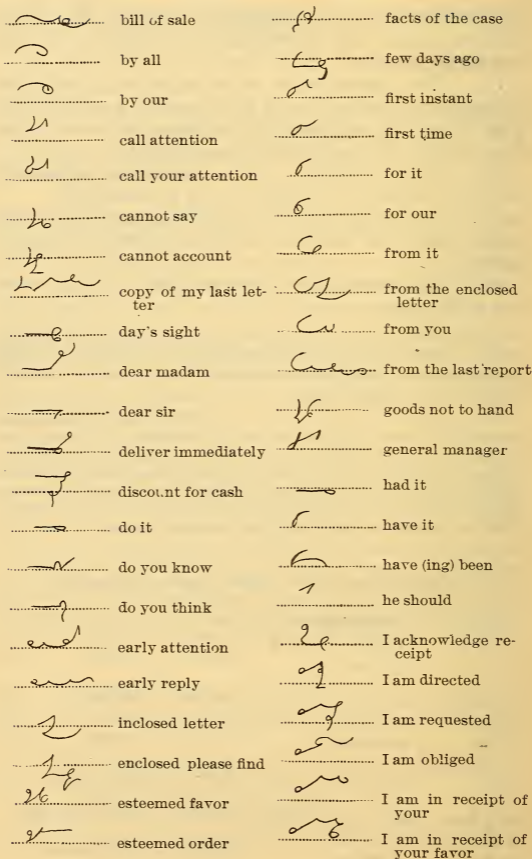 bill of sale
by all
by our
call attention
call your attention
cannot say
cannot account
copy of my last let-
ter
day's sight
dear madam
dear sir
deliver immediately
discount for cash
do it
do you know
do you think
early attention
early reply
inclosed letter
enclosed please find
esteemed favor
esteemed order
facts of the case
few days ago
first instant
first time
for it
for our
from it
from the enclosed
letter
from you
from the last report
goods not to hand
general manager
had it
have it
have (ing) been
he should
I acknowledge re-
ceipt
I am directed
I am requested
I am obliged
I am in receipt of
your
I am in receipt of
your favor